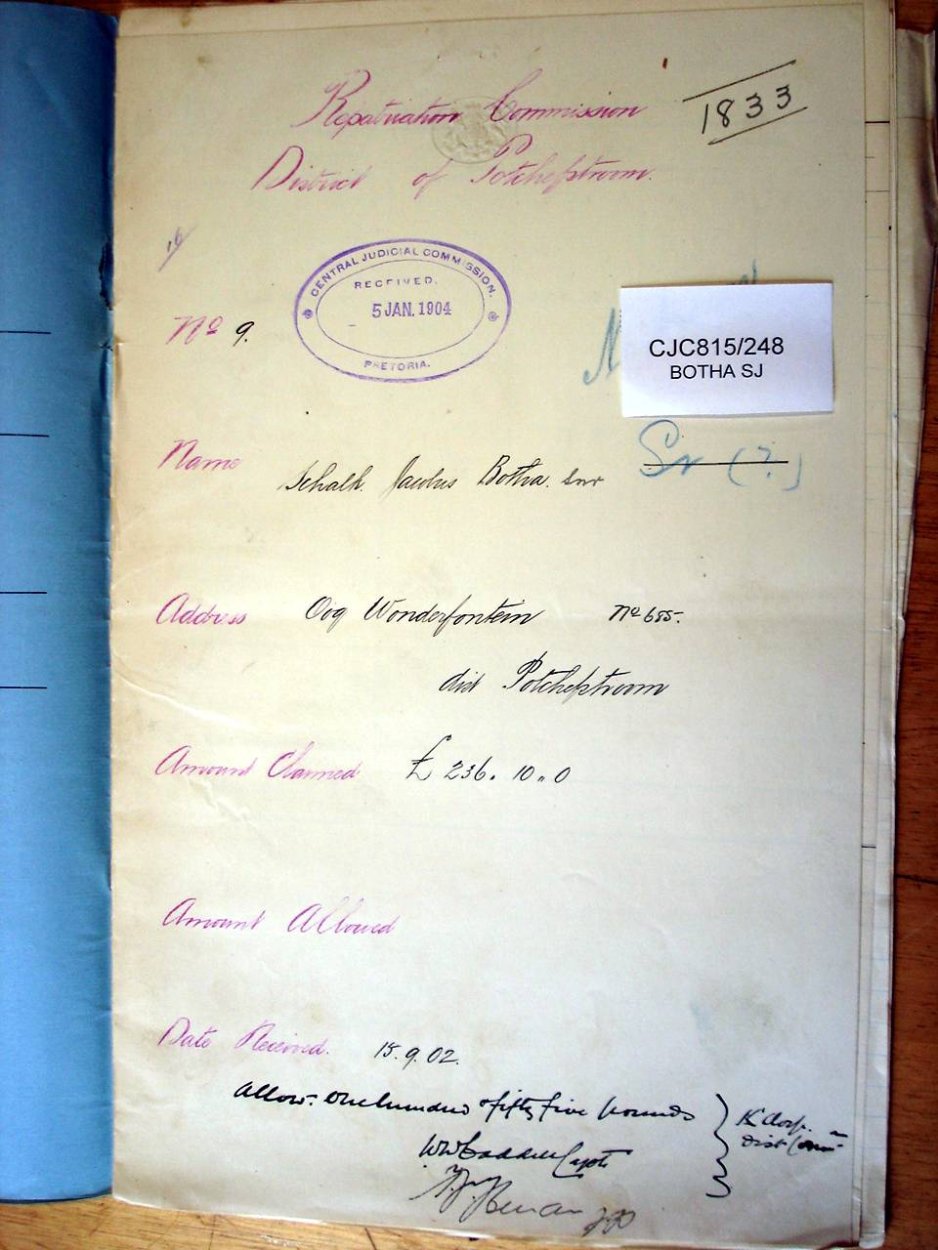 1833
Repatriation Commission
District of Potchefstroom.
CENTRAL JUDICIAL COMMISSION.
RECEIVED.
5 JAN. 1904
PRETORIA.
No 9.
CJC815/248
BOTHA SJ
Name Schalk Jacobus Botha. Snr
Sr (?)
Address Oog Wonderfontein No 655.
dist Potchefstroom
Amount Claimed £ 236. 10 " 0
Amount Allowed
Date Received. 15.9.02.
Allow. One hundred & fifty five pounds
K'dorp.
Dist Comn
Capt